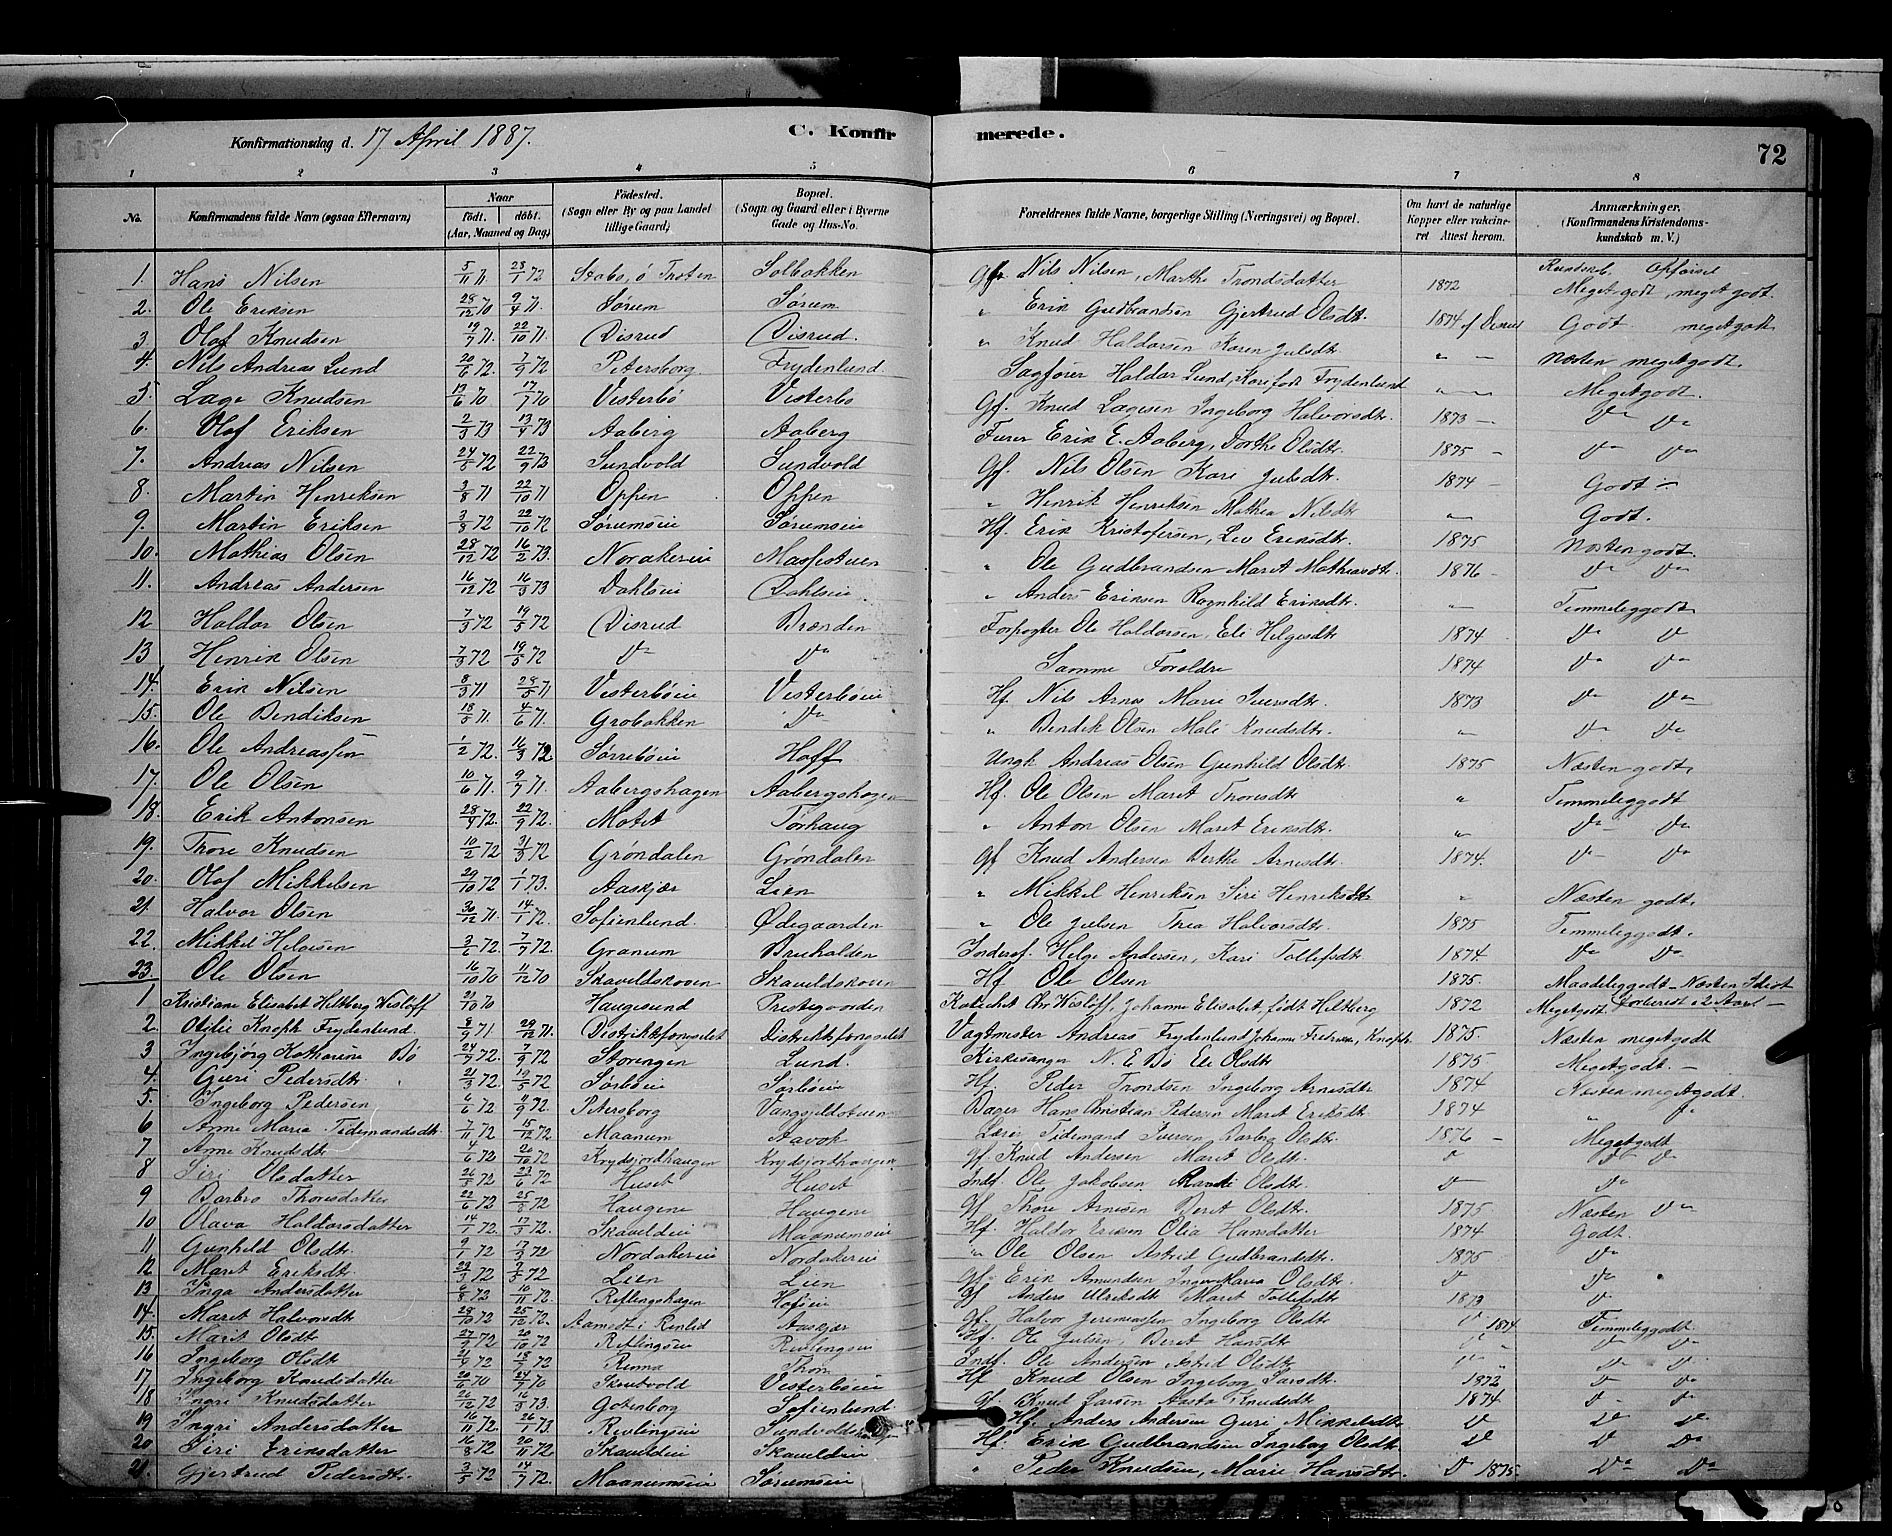 Konfirmationsdag d. 17 April 1887. C. Konfirmerede. 72
1 2 3 4 5 6 7 8
No. Konfirmandens fulde Navn (ogsaa Efternavn) Naar födt. döbt. (Aar, Maaned og Dag) Födested. (Sogn eller By og paa Landet tillige Gaard) Bopæl. (Sogn og Gaard eller i Byerne Gade og Hus-No. Forældrenes fulde Navne, borgerlige Stilling (Næringsvei) og Bopæl. Om havt de naturlige Kopper eller vakcineret Attest herom. Anmærkninger. (Konfirmandens Kristendomskundskab m. V.)
1. Hans Nilsen 5/11 71 28/1 72 Stabs, ö Toten Solbakken Gf. Nils Nilsen, Marthe Trondsdatter 1872 Meget godt, meget godt.
2. Ole Eriksen 28/12 70 9/4 71. Sørum Sørum " Erik Gudbrandsen Gjertrud Olsdt. 1874 Godt meget godt
3 Olaf Knudsen 19/7 71. 22/10 71. Disrud Disrud. " Knud Haldorsen Karen Julsdt " — Næsten meget godt.
4. Nils Andreas Lund 20/6 72. 7/9 72 Petersborg. Frydenlund. Sagfører Haldor Lund, Kari født Frydenlund " — Meget godt.
5. Lage Knudsen 13/6 70 17/7 70 Vesterbö Vesterbö Gf. Knud Lagesen Ingeborg Halvorsdt. 1873 — Do Do
6. Olaf Eriksen 2/3 73 13/4 73 Aaberg Aaberg Furer Erik E. Aaberg, Dorthe Olsdt. 1875 - Do Do
7. Andreas Nilsen 24/5 72 22/9 73 Sundvold Sundvold Gf. Nils Olsen Kari Julsdt 1874 - Godt
8. Martin Henriksen 3/8 71 22/10 71 Oppen Oppen " Henrik Henriksen Mathea Nilsdt " Godt.
9. Martin Eriksen 3/8 72 22/10 72 Sørumseie Sørumseie Hf. Erik Kristofersen, Liv Eriksdt. 1875 Næsten godt
10. Mathias Olsen 28/12 72 16/2 73. Norakereie Masfestuen " Ole Gudbrandsen Marit Mathiasdt. 1876 - Do Do
11. Andreas Andersen 16/12 72 16/3 73 Dahlseie Dahlseie " Anders Eriksen Ragnhild Eriksdt. — Temmeliggodt
12 Haldor Olsen 7/3 72 19/5 72 Disrud Brænden Forpagter Ole Haldorsen, Eli Helgesdt 1874 Do Do
13 Henrik Olsen 7/3 72 19/5 72 Do Do Samme Foreldre 1874 Do Do
14. Erik Nilsen 8/3 71 28/5 71 Vesterböeie Vesterböeie Hf. Nils Arnes Marie Iversdt. 1873 Do Do
15. Ole Bendiksen 18/5 71. 4/6 71. Grobakken Do " Bendik Olsen Mali Knudsdt. " Do Do
16. Ole Andreassen 1/2 72. 16/3 72 Sørreböeie Hoff Ungk Andreas Olsen Gunhild Olsdt. 1875 Næsten godt
17. Ole Olsen 10/6 71. 9/7 71. Aabergshagen Aabergshagen Hf. Ole Olsen Marit Thoresdt " Temmeliggodt
18. Erik Antonsen 28/4 72. 22/9 72. Motet Torhaug " Anton Olsen Marit Eriksdt. " Do Do
19. Thore Knudsen 10/2 72 31/3 72 Gröndalen Gröndalen Gf Knud Andersen Berthe Arnesdt. 1874. Do Do
20. Olaf Mikkelsen 29/10 72 1/1 73. Aaskjær Lien " Mikkel Henriksen Siri Henriksdt " Næsten godt.
21. Halvor Olsen 30/12 71. 14/1 72. Sofienlund. Ødegaarden " Ole Julsen Thea Halvorsdt. 1875 Temmeliggodt.
22. Mikkel Helgesen 3/6 72. 7/7 72. Granum Bruhalden Inderst. Helge Andersen, Kari Tollefsdt 1874 Do Do
23. Ole Olsen 16/10 70 11/12 70 Skaueldskoven Skaueldskoven Hf. Ole Olsen 1875. Maadeliggodt - Næsten Idiot
1 Kristiane Elisabet Heltberg Wisløff 21/10 70 Haugesund Prestegaarden Katechet Chr Wisløff, Johanne Elisabet, født Heltberg 1872 Meget godt. forberedt i 2 Aar —
2. Otilie Knoph Frydenlund. 8/9 71 29/12 71. Distriktsfengselet Distriktsfengselet Vagtmester Andreas Frydenlund Johanne Knoph 1875. Næsten meget godt
3 Ingebjørg Katharine Bö 24/7 72. 7/9 72 Storengen Lund. Kirkesanger N. E Bö Eli Olsdt 1875 Meget godt. —
4. Guri Pedersdt. 21/3 72 19/5 72 Sörböeie Sörböeie Hf. Peder Trondsen Ingeborg Arnesdt 1874 Næsten meget godt.
5. Ingeborg Pedersen 6/6 72 11/9 72. Petersborg Vangsjeldstuen Bager Hans Christian Pedersen Marit Eriksdt. 1874 "
6 Anne Maria Tidemandsdt. 7/11 72 15/12 72 Maanum Aavok Lærer Tidemand Iversen Barbro Olsdt. 1876 - Meget godt
7 Anne Knudsdt 4/6 72 20/10 72 Krydsjordhaugen Krydsjordhaugen Gf. Knud Andersen Marit Olsdt. Do Do Do
8 Siri Olsdatter 26/3 72 23/6 72 Huset Huset Indf. Ole Jakobsen Randi Olsdt. Do Do
9 Barbro Thoresdatter 22/6 72 25/8 72 Haugene Haugene Gf Thore Arnesen Berit Olsdt. 1875 Næsten Do
10 Olava Haldorsdatter 14/1 72. 17/3 72. Skaueldeie Maanumseie Hf. Haldor Eriksen Olia Hansdatter 1874 Godt.
11 Gunhild Olsdt. 9/1 72 17/3 72 Nordakereie Nordakereie " Ole Olsen Astrid Gudbrandsdt. 1875 Do
12 Marit Eriksdt. 22/3 72 2/5 72 Lien Lien Gf. Erik Amundsen Inger Maria Olsdt. Do Do
13 Inga Andersdatter 6/8 72 10/11 72. Reflingshagen Hofseie Gf Anders Ulriksdt Marit Tollefsdt 1873 Do
14. Marit Halvorsdt 28/10 72 25/12 72. Aamodt i Rinlid Aaskjær Gf. Halvor Jeremiassen Ingeborg Olsdt Do 1874 Temmeliggodt
15. Marit Olsdt 27/9 72 20/10 72 Reflingseie Revlingseie Hf. Ole Julsen, Berit Hansdt " Do Do
16 Ingeborg Olsdt 21/4 72 18/7 72 Renna Thon Indf. Ole Andersen Astrid Olsdt " Do Do
17 Ingeborg Knudsdatter 20/6 70 24/7 70 Skoutvold Vesterböeie Hf Knud Olsen Ingeborg Larsdt. 1872 Do Do
18 Ingri Knudsdatter 26/12 72 16/3 73. Gotenborg Sofienlund Gf. Knud Larsen Aasta Knudsdt 1874 Do Do
19 Ingri Andersdatter 16/11 72. 26/1 73 Revlingseie Sundvolds Hf. Anders Andersen Guri Mikkelsdt Do Do Do
20 Siri Eriksdatter 16/8 72 20/11 72 Skaueldeie Skaueldeie Hf. Erik Gudbrandsen Ingebog Olsdt. Do Do Do
21. Gjertrud Pedersdt. 3/5 72 14/7 72. Maanumseie Sørumseie " Peder Knudsen, Marie Hansdt. Do 1875. Do Do